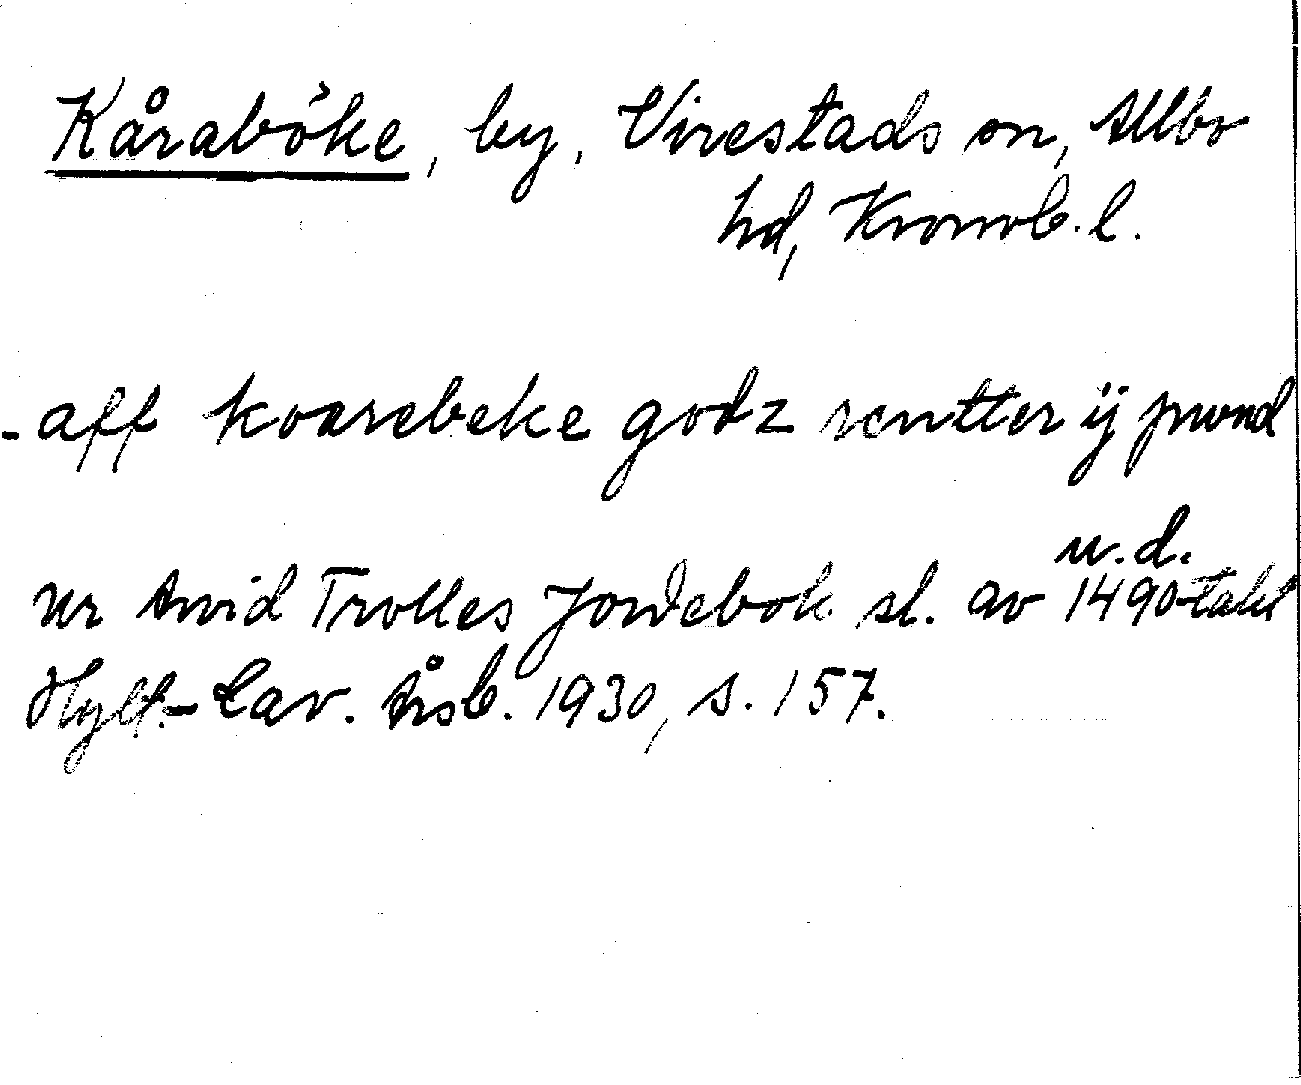 Kåraböke, by, Virestads sn, Allbo
hd, Kronob. l.
- aff koarebeke godz rentter ij pund
u.d.
ur Arvid Trolles Jordebok sl. av 1490-talet
Hylt.-Cav. Årsb. 1930, s. 157.